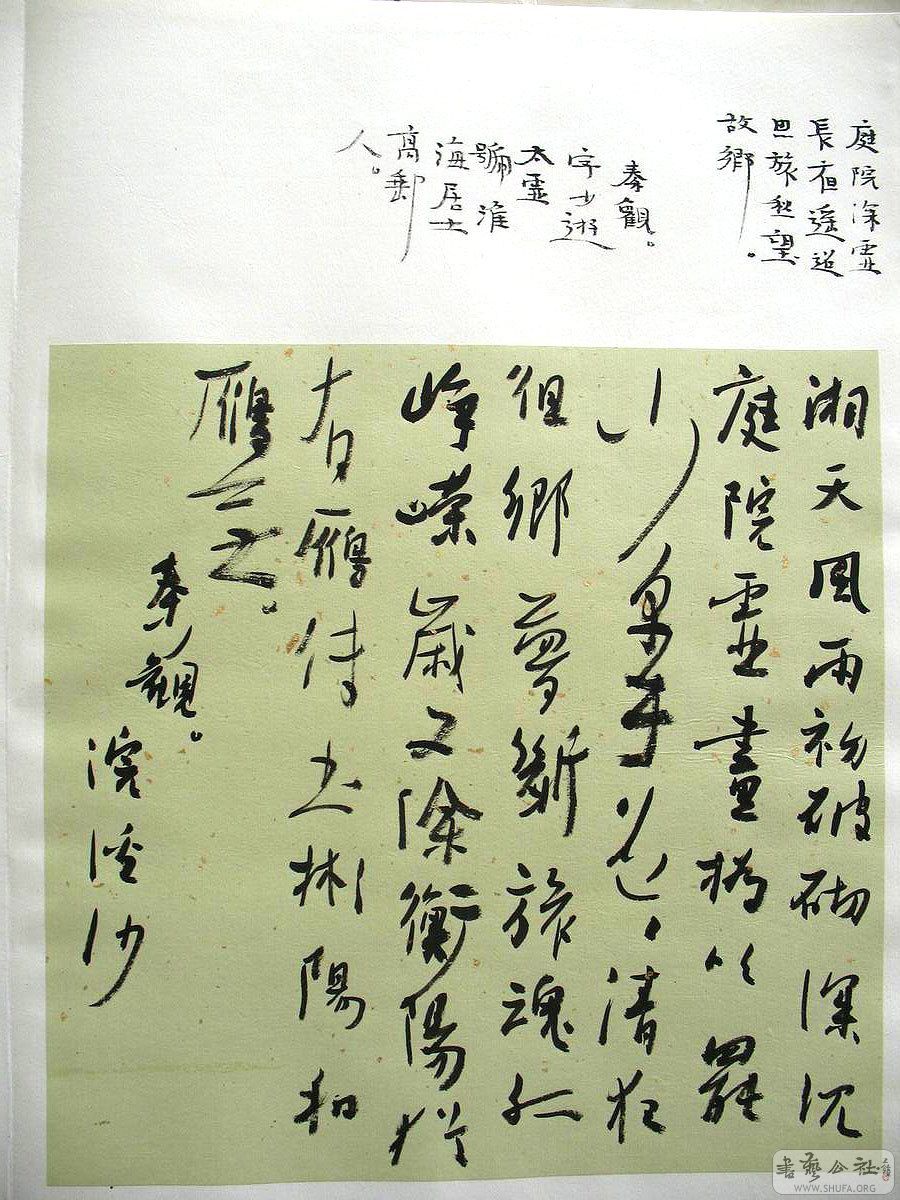 庭院深虛
長夜遙迢
思旅愁望
故鄉。
秦觀。
字少游
太虛
號淮
海居士
高郵
人。
湘天風雨初破砌深沉
庭院虛畫橋吹罷
小單于迢迢清夜
徂鄉夢斷旅魂孤
崢嶸歲又除衡陽猶
有雁傳書彬陽和
雁無。
秦觀。
浣溪沙
書藝公社
WWW.SHUFA.ORG